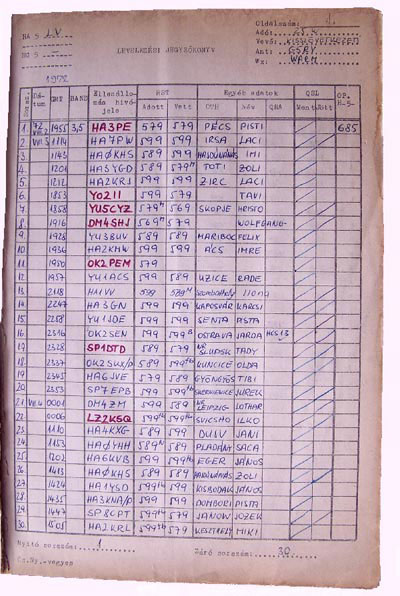 HA 5 LV
HG 5
LEVELEZÉSI JEGYZŐKÖNYV
Oldalszám: 1.
Adó: 25 W
Vevő:
Ant: G5RV
Wx: WARM
1972
Sorszám Dátum GMT BAND Ellenállomás hívójele RST Egyéb adatok QSL OP. H-5-
Adott Vett QTH Név QRA Ment Jött
1 72 VIII 2 1955 3,5 HA3PE 579 579 PÉCS PISTI 685
2 VIII 3 1114 HA7PW 599 599 IRSA LACI
3 1143 HA0KHS 589 599 IMI
4 1201 HA3YGD 589 579 TOTI ZOLI
5 1212 HA2KRJ 599 599 ZIRC LACI
6 1853 YO2II 599 579 TAVI
7 1858 YU5CYZ 579 569 SKOPJE HRISTO
8 1916 DM4SHJ 569 579 WOLFGANG
9 1928 YU3BUV 589 589 MARIBOR FELIX
10 1936 HA2KMW 599 599 ÁCS IMRE
11 1950 OK2PEM 579
12 1957 YU1ACS 599 589 UZICE RADE
13 2118 HA1VV 599 579 Szombathely Ilona
14 2247 HA3GN 599 599 KAPOSVÁR KARCSI
15 2258 YU1JDE 599 599 SENTA PISTA
16 2316 OK2SEN 599 599 OSTRAVA JARDA
17 2328 SP1DTD 589 579 NR SLUPSK TADY
18 2337 OK2SUX/P 589 599 KUNCICE OLDA
19 2345 HA6JVE 579 589 GYÖNGYÖS TIBI
20 2353 SP7EPB 599 599 JUREK
21 VIII 4 0001 DM4ZM 599 589 NR LEIPZIG LOTHAR
22 0006 LZ2KSQ 599 599 SVICSHO ILKO
23 1110 HA4KXG 589 589 DUIV JANI
24 1153 HA0YHH 589 589 PLADÁNY SACA
25 1202 HA6KVB 599 599 EGER JÁNOS
26 1413 HA0KHS 589 589 ZOLI
27 1424 HA1YSD 599 599 KISBODAK JÁNOS
28 1435 HA3KNA/P 599 599 DOMBÓRI PISTA
29 1447 SP8CPT 599 579 JANOW JOZEK
30 1505 HA2KRL 599 579 KESZTHELY MIKI
Nyitó sorszám: 1
Záró sorszám: 30